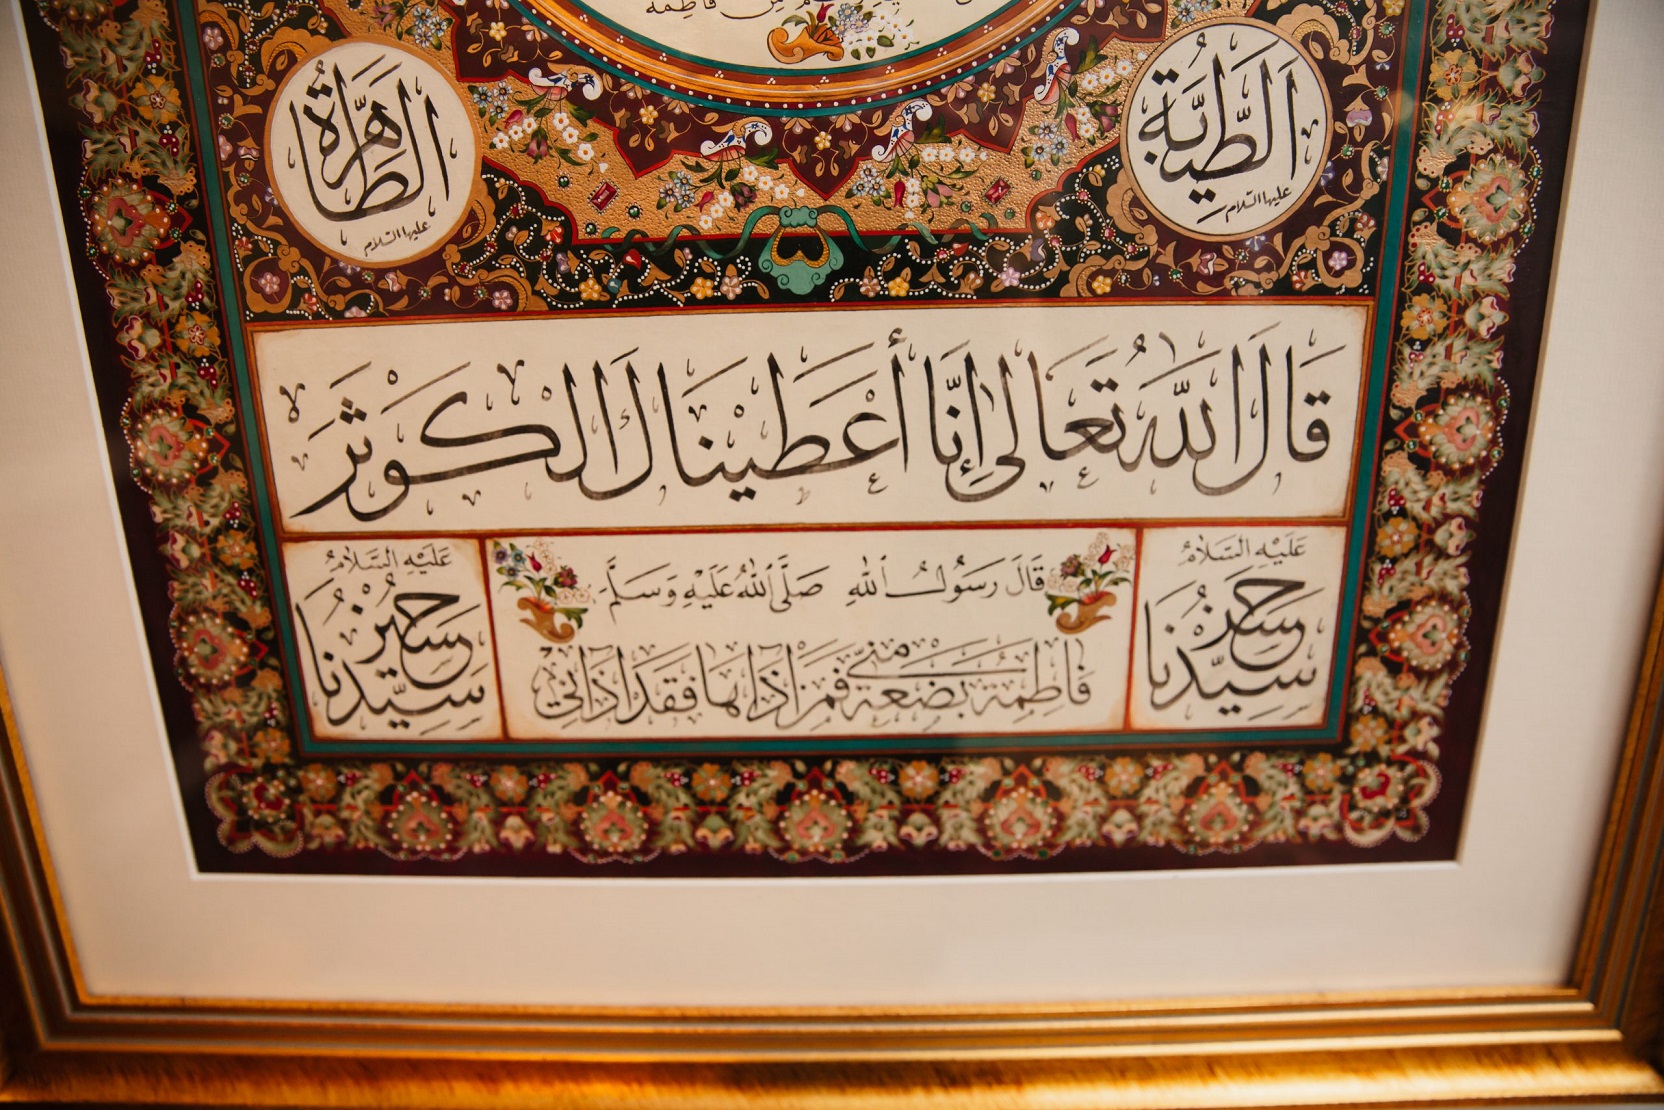 فاطمة
الطَّيِّبَةُ
عليها السلام
الطَّاهِرَةُ
عليها السلام
قَالَ اللهُ تَعَالَى إِنَّا أَعْطَيْنَاكَ الْكَوْثَرَ
عَلَيْهِ السَّلَامُ
سَيِّدُنَا حَسَنُ
قَالَ رَسُولُ اللهِ صَلَّى اللهُ عَلَيْهِ وَسَلَّمَ
فَاطِمَةُ بَضْعَةٌ مِنِّي فَمَنْ اٰذَاهَا فَقَدْ اٰذَانِي
عَلَيْهِ السَّلَامُ
سَيِّدُنَا حُسَيْنُ